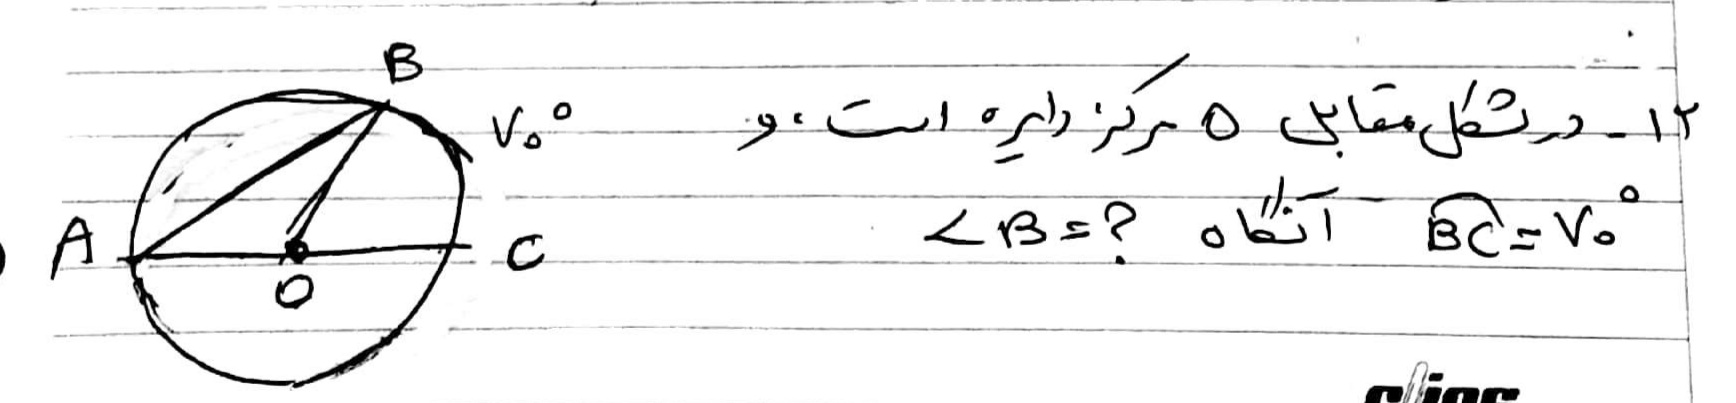 ۱۲- در شکل مقابل O مرکز دایره است، و
BC = ۷۰° آنگاه ∠B = ?
B
۷۰°
A
C
O